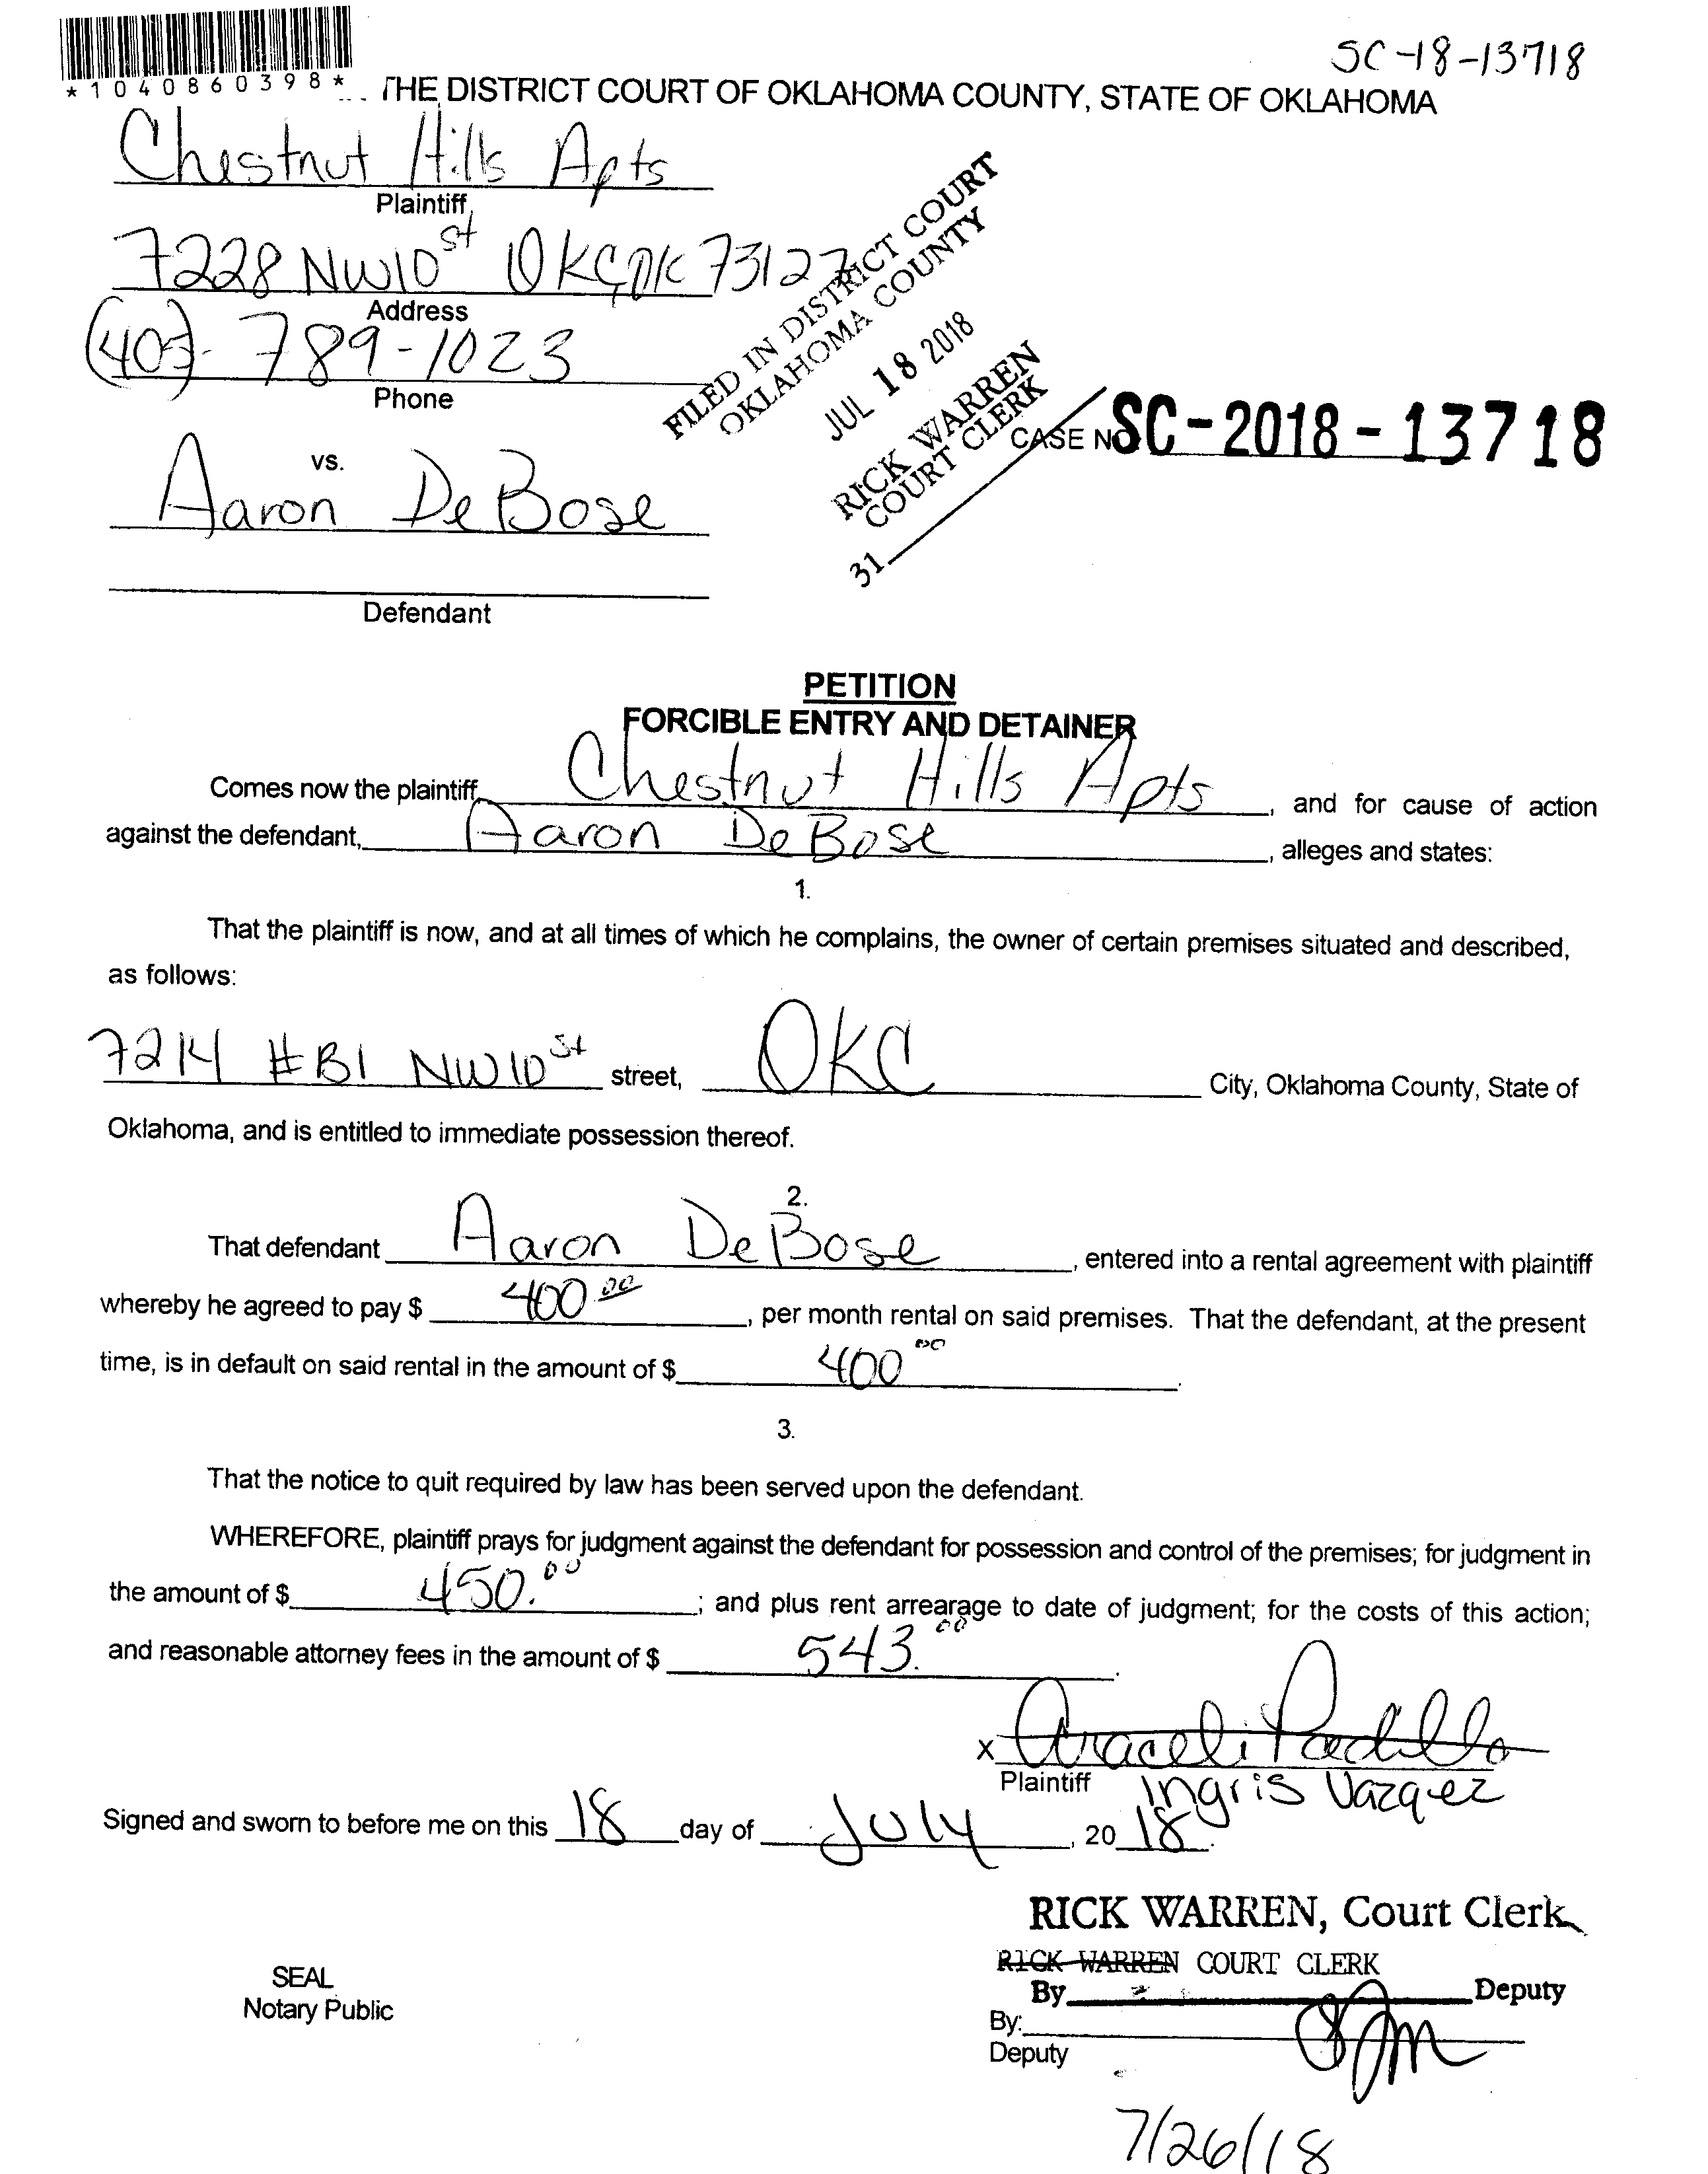 SC-18-13718
*1040860398*
THE DISTRICT COURT OF OKLAHOMA COUNTY, STATE OF OKLAHOMA
Chestnut Hills Apts
Plaintiff,
7228 NW10st OKC, OK 73127
Address
(405)-789-1023
Phone
FILED IN DISTRICT COURT
OKLAHOMA COUNTY
JUL 18 2018
RICK WARREN
COURT CLERK
31
CASE NO SC-2018-13718
vs.
Aaron DeBose
Defendant
PETITION
FORCIBLE ENTRY AND DETAINER
Comes now the plaintiff, Chestnut Hills Apts, and for cause of action
against the defendant, Aaron DeBose, alleges and states:
1.
That the plaintiff is now, and at all times of which he complains, the owner of certain premises situated and described,
as follows:
7214 #B1 NW10st street, OKC City, Oklahoma County, State of
Oklahoma, and is entitled to immediate possession thereof.
2.
That defendant Aaron DeBose, entered into a rental agreement with plaintiff
whereby he agreed to pay $ 400.00, per month rental on said premises. That the defendant, at the present
time, is in default on said rental in the amount of $ 400 00.
3.
That the notice to quit required by law has been served upon the defendant.
WHEREFORE, plaintiff prays for judgment against the defendant for possession and control of the premises; for judgment in
the amount of $ 450.00; and plus rent arrearage to date of judgment; for the costs of this action;
and reasonable attorney fees in the amount of $ 543.00.
x Araceli Padilla
Plaintiff Ingris Vazquez
Signed and sworn to before me on this 18 day of July, 20 18.
RICK WARREN, Court Clerk
RICK WARREN COURT CLERK
SEAL
Notary Public
By Deputy
By:
Deputy
7/26/18